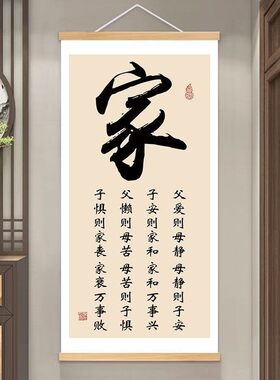 家
父爱则母静母静则子安
子安则家和家和万事兴
父懒则母苦母苦则子惧
子惧则家丧家衰万事败